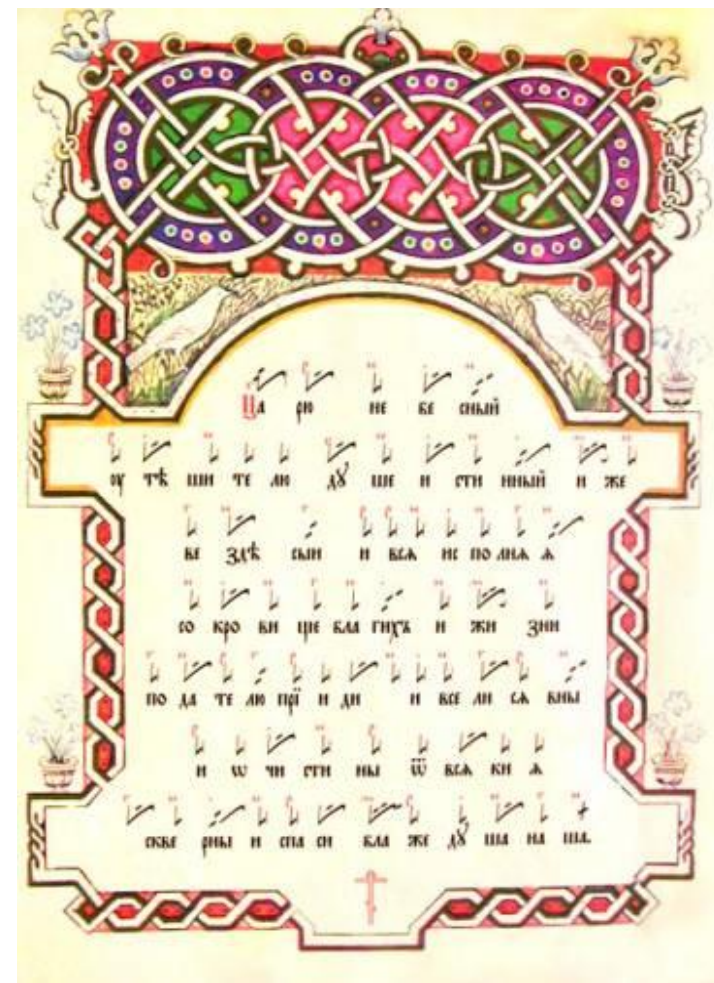 Ца рю не бе сный
оу тѣ ши те лю ду ше и сти нный и же
ве здѣ сыи и всѧ ис по лнѧ ѧ
со кро ви ще бла гихъ и жи зни
по да те лю прїи ди и все ли сѧ вны
и ѡ чи сти ны ѿ всѧ ки ѧ
скве рны и спа си бла же ду ша на ша.